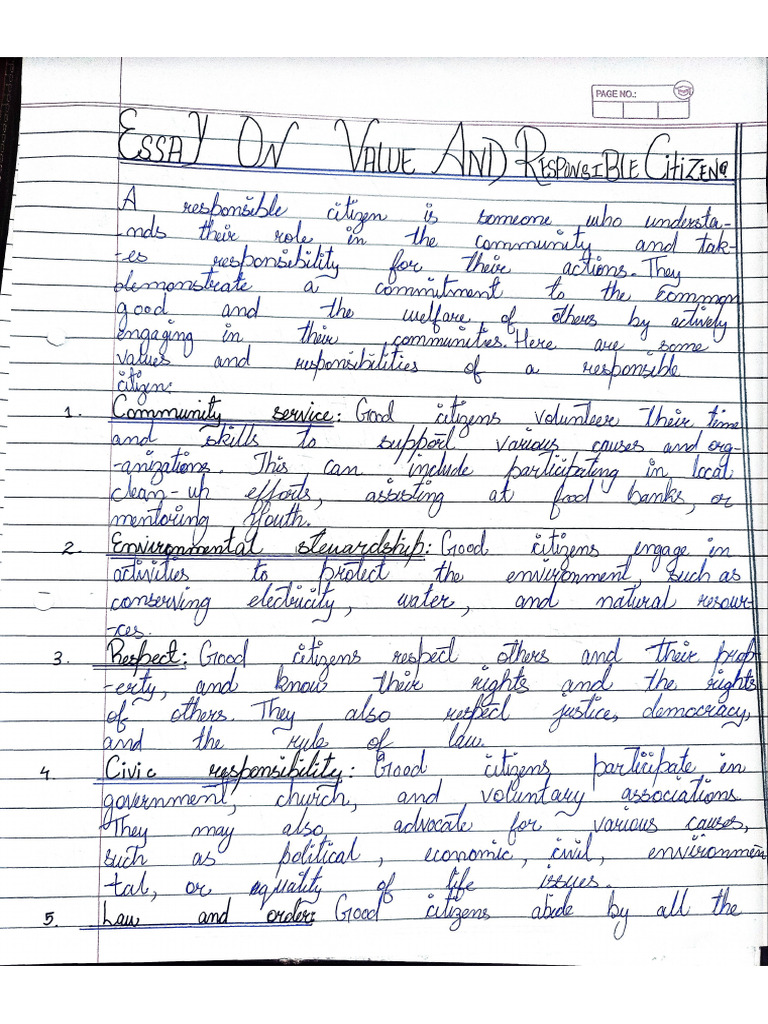 PAGE NO.:
ESSAY ON VALUE AND RESPONSIBLE CITIZEN
A responsible citizen is someone who understa-
-nds their role in the community and tak-
-es responsibility for their actions. They
demonstrate a commitment to the common
good and the welfare of others by actively
engaging in their communities. Here are some
values and responsibilities of a responsible
citizen:
1. Community service: Good citizens volunteer their time
and skills to support various causes and org-
-anizations. This can include participating in local
clean-up efforts, assisting at food banks, or
mentoring youth.
2. Environmental stewardship: Good citizens engage in
activities to protect the environment, such as
conserving electricity, water, and natural resour-
-ces.
3. Respect: Good citizens respect others and their prop-
-erty, and know their rights and the rights
of others. They also respect justice, democracy,
and the rule of law.
4. Civic responsibility: Good citizens participate in
government, church, and voluntary associations.
They may also advocate for various causes,
such as political, economic, civil, environmen
-tal, or quality of life issues.
5. Law and order: Good citizens abide by all the